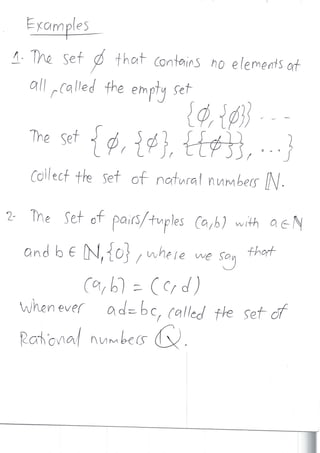 Examples
1- The set ∅ that contains no elements at
all, called the empty set
{∅,{∅}} - - -
The set {∅, {∅}, {{∅}}, ...}
Collect the set of natural numbers ℕ.
2- The set of pairs/tuples (a,b) with a ∈ ℕ
and b ∈ ℕ,{0}, where we say that
(a,b) = (c,d)
Whenever ad=bc, called the set of
Rational numbers ℚ.